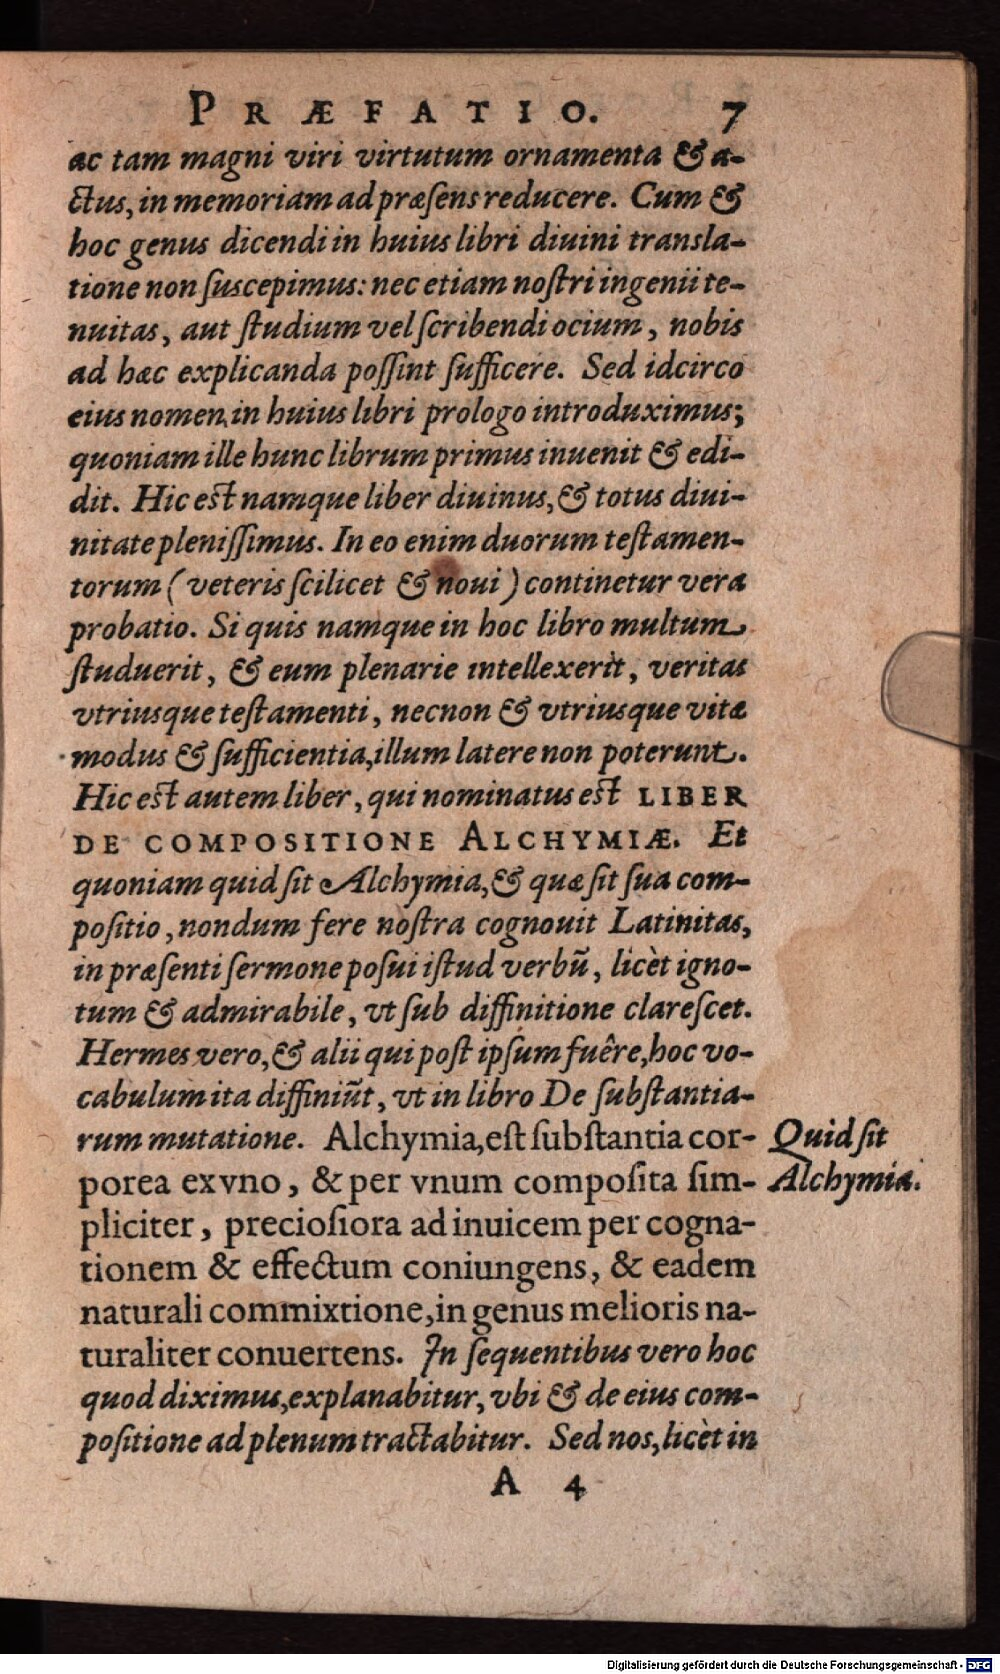 PRÆFATIO. 7
ac tam magni viri virtutum ornamenta & a-
ctus, in memoriam ad præsens reducere. Cum &
hoc genus dicendi in huius libri diuini transla-
tione non suscepimus: nec etiam nostri ingenii te-
nuitas, aut studium vel scribendi ocium, nobis
ad hæc explicanda possint sufficere. Sed idcirco
eius nomen in huius libri prologo introduximus;
quoniam ille hunc librum primus inuenit & edi-
dit. Hic est namque liber diuinus, & totus diui-
nitate plenissimus. In eo enim duorum testamen-
torum (veteris scilicet & noui) continetur vera
probatio. Si quis namque in hoc libro multum
studuerit, & eum plenarie intellexerit, veritas
vtriusque testamenti, necnon & vtriusque vitæ
modus & sufficientia, illum latere non poterunt.
Hic est autem liber, qui nominatus est LIBER
DE COMPOSITIONE ALCHYMIÆ. Et
quoniam quid sit Alchymia, & quæ sit sua com-
positio, nondum fere nostra cognouit Latinitas,
in præsenti sermone posui istud verbũ, licèt igno-
tum & admirabile, vt sub diffinitione clarescet.
Hermes vero, & alii qui post ipsum fuêre, hoc vo-
cabulum ita diffiniũt, vt in libro De substantia-
rum mutatione. Alchymia, est substantia cor-
porea ex vno, & per vnum composita sim-
pliciter, preciosiora ad inuicem per cogna-
tionem & effectum coniungens, & eadem
naturali commixtione, in genus melioris na-
turaliter conuertens. In sequentibus vero hoc
quod diximus, explanabitur, vbi & de eius com-
positione ad plenum tractabitur. Sed nos, licèt in
A 4
Quid sit
Alchymia.
Digitalisierung gefördert durch die Deutsche Forschungsgemeinschaft - DFG